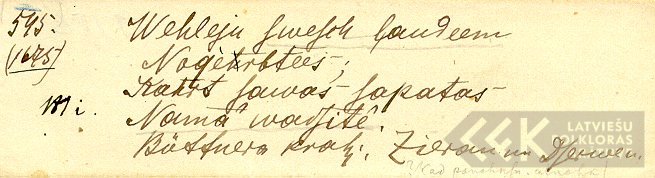 595.
(1675)
Wehleju swesch laudeem
Nogehrbtees;
Kahrt sawas lapatas
Namâ wadsitê.
Büttnera krahj. Zieran un Dserwen.
LATVIEŠU
FOLKLORAS